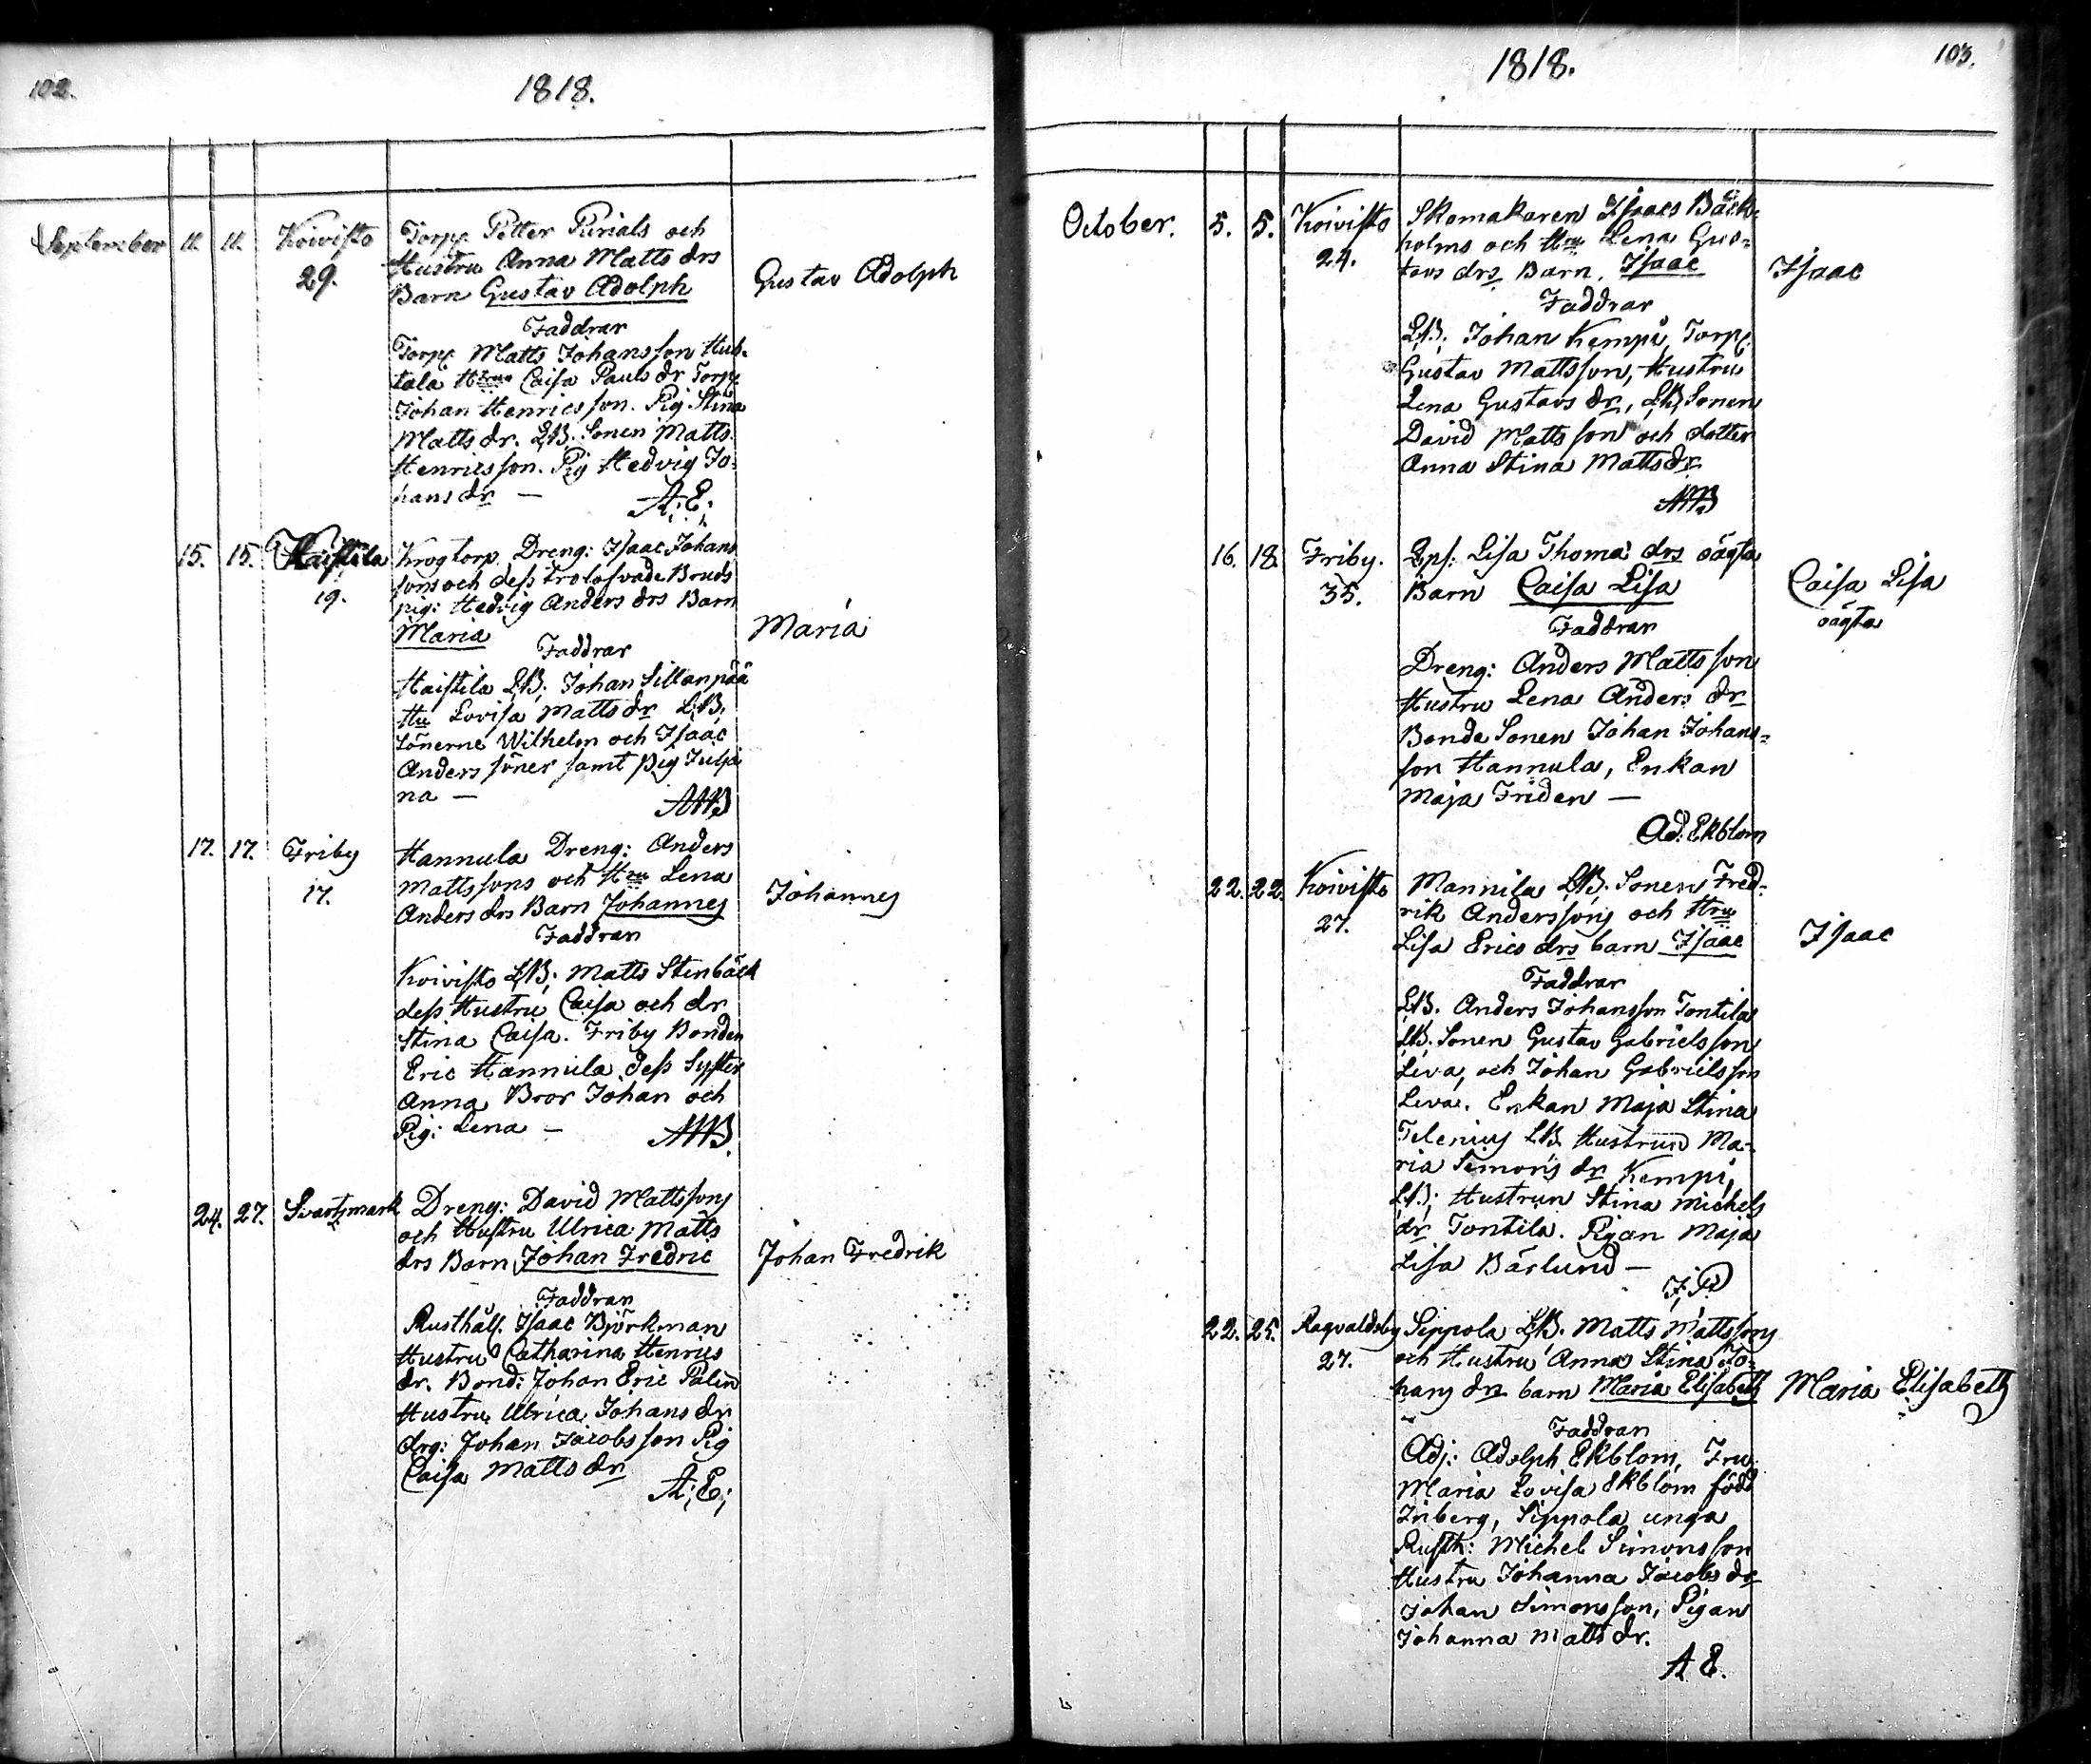 102.
1818.
September 11. 11. Koivisto
29.
Torp: Petter Purials och
Hustru Anna Matts drs
Barn Gustav Adolph
Gustav Adolph
Faddrar
Torp: Matts Johansson Huh-
tala Hru Caisa Pauls dr Torp:
Johan Henricsson. Pig. Stina
Matts dr. LB. Sonen Matts
Henricsson. Pig Hedvig Jo-
hans dr —
A: E:
15. 15. Haistila
19.
Krogtorp. Dreng: Isaac Johans
sons och dess trolofvade Bruds
pig: Hedvig Anders drs Barn
Maria
Maria
Faddrar
Haistila LB: Johan Sillanpää
Hu Lovisa Matts dr LB.
Sönerne Wilhelm och Isaac
Anders söner samt Pig Julia
na —
17. 17. Friby
17.
Hannula Dreng: Anders
Mattssons och Hru Lena
Anders drs Barn Johannes
Johannes
Faddran
Koivisto LB: Matts Stenbäck
dess Hustru Caisa och dr
Stina Caisa. Friby Bonden
Eric Hannula dess Syster
Anna, Bror Johan och
Pig: Lena —
24. 27. Svartsmark
2.
Dreng: David Mattssons
och Hustru Ulrica Matts
drs Barn Johan Fredric
Johan Fredrik
Faddran
Rusthåll. Isaac Björkman
Hustru Catharina Henrics
dr. Bond: Johan Eric Palin
Hustru Ulrica Johans dr
drg: Johan Jacobsson Pig
Caisa Matts dr
A: E:
103.
1818.
October. 5. 5. Koivisto
24.
Skomakaren Isaacs Bäck-
holms och Hru Lena Gus-
tavs drs Barn. Isaac
Isaac
Faddrar
LB: Johan Kempi, Torp:
Gustav Mattsson, Hustru
Lena Gustavs dr, LB Sonen
David Matts son och dotter
Anna Stina Mattsdr
16. 18. Friby.
35.
Lisa Thomæ drs oägta
Barn Caisa Lisa
Caisa Lisa
oägta
Faddran
Dreng: Anders Matts son
Hustru Lena Anders dr
Bonde Sonen Johan Johans-
son Hannula, Enkan
Maja Friden —
Ad. Ekblom
22. 22. Koivisto
27.
Mannila LB. Sonen Fred-
rik Anderssons och Hru
Lisa Erics drs barn Isaac
Isaac
Faddrar
LB. Anders Johansson Tontila
LB. Sonen Gustav Gabrielsson
Leva, och Johan Gabrielsson
Leva. Enkan Maja Stina
Telenius LB. Hustrun Ma-
ria Simons dr Kempi,
LB; Hustrun Stina Michels
dr Tontila. Pigan Maja
Lisa Bärlund —
22. 25. Ragvaldsby
27.
Sippola LB. Matts Mattssons
och Hustru Anna Stina Jo-
hans drs barn Maria Elisabeth
Maria Elisabeth
Faddran
Adj: Adolph Ekblom, Fru
Maria Lovisa Ekblom född
Friberg, Sippola unga
Rusth: Michel Simonsson
Hustru Johanna Jacobs dr
Johan Simonsson, Pigan
Johanna Matts dr.
A E.